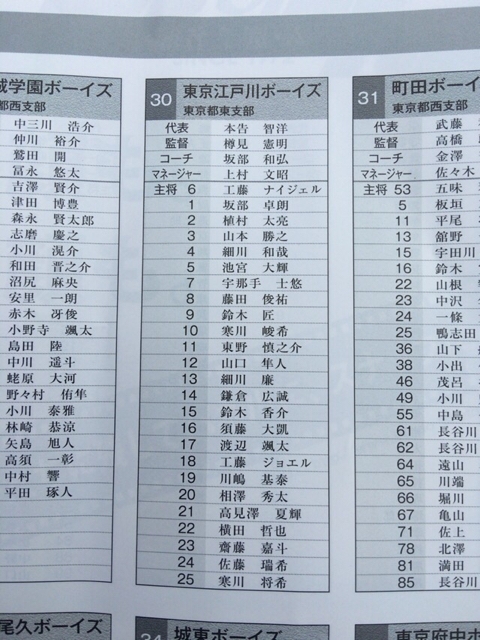 城学園ボーイズ
都西支部
中三川 浩介
仲川 裕介
鷲田 開
冨永 悠太
吉澤 賢介
津田 博豊
森永 賢太郎
志磨 慶之
小川 滉介
和田 晋之介
沼尻 麻央
安里 一朗
赤木 冴俊
小野寺 颯太
島田 陸
中川 遥斗
蛯原 大河
野々村 侑隼
小川 泰雅
林崎 恭涼
矢島 旭人
高須 一彰
中村 響
平田 琢人
30 東京江戸川ボーイズ
東京都東支部
代表 本告 智洋
監督 樽見 憲明
コーチ 坂部 和弘
マネージャー 上村 文昭
主将 6 工藤 ナイジェル
1 坂部 卓朗
2 植村 太亮
3 山本 勝之
4 細川 和哉
5 池宮 大輝
7 宇那手 士悠
8 藤田 俊祐
9 鈴木 匠
10 寒川 峻希
11 東野 慎之介
12 山口 隼人
13 細川 廉
14 鎌倉 広誠
15 鈴木 香介
16 須藤 大凱
17 渡辺 颯太
18 工藤 ジョエル
19 川嶋 基泰
20 相澤 秀太
21 高見澤 夏輝
22 横田 哲也
23 齋藤 嘉斗
24 佐藤 瑞希
25 寒川 将希
31 町田ボーイ
東京都西支部
代表 武藤
監督 高橋
コーチ 金澤
マネージャー 佐々木
主将 53 五味
5 板垣
11 平尾
13 舘野
15 宇田川
16 鈴木
22 山根
23 中沢
24 一條
25 鴨志田
36 山下
38 小出
46 茂呂
49 小川
55 中島
61 長谷川
62 長谷川
64 遠山
65 川端
66 堀川
67 亀山
71 佐上
78 北澤
81 満田
85 長谷川
尾久ボーイズ
34 城東ボーイズ
東京府中ボ